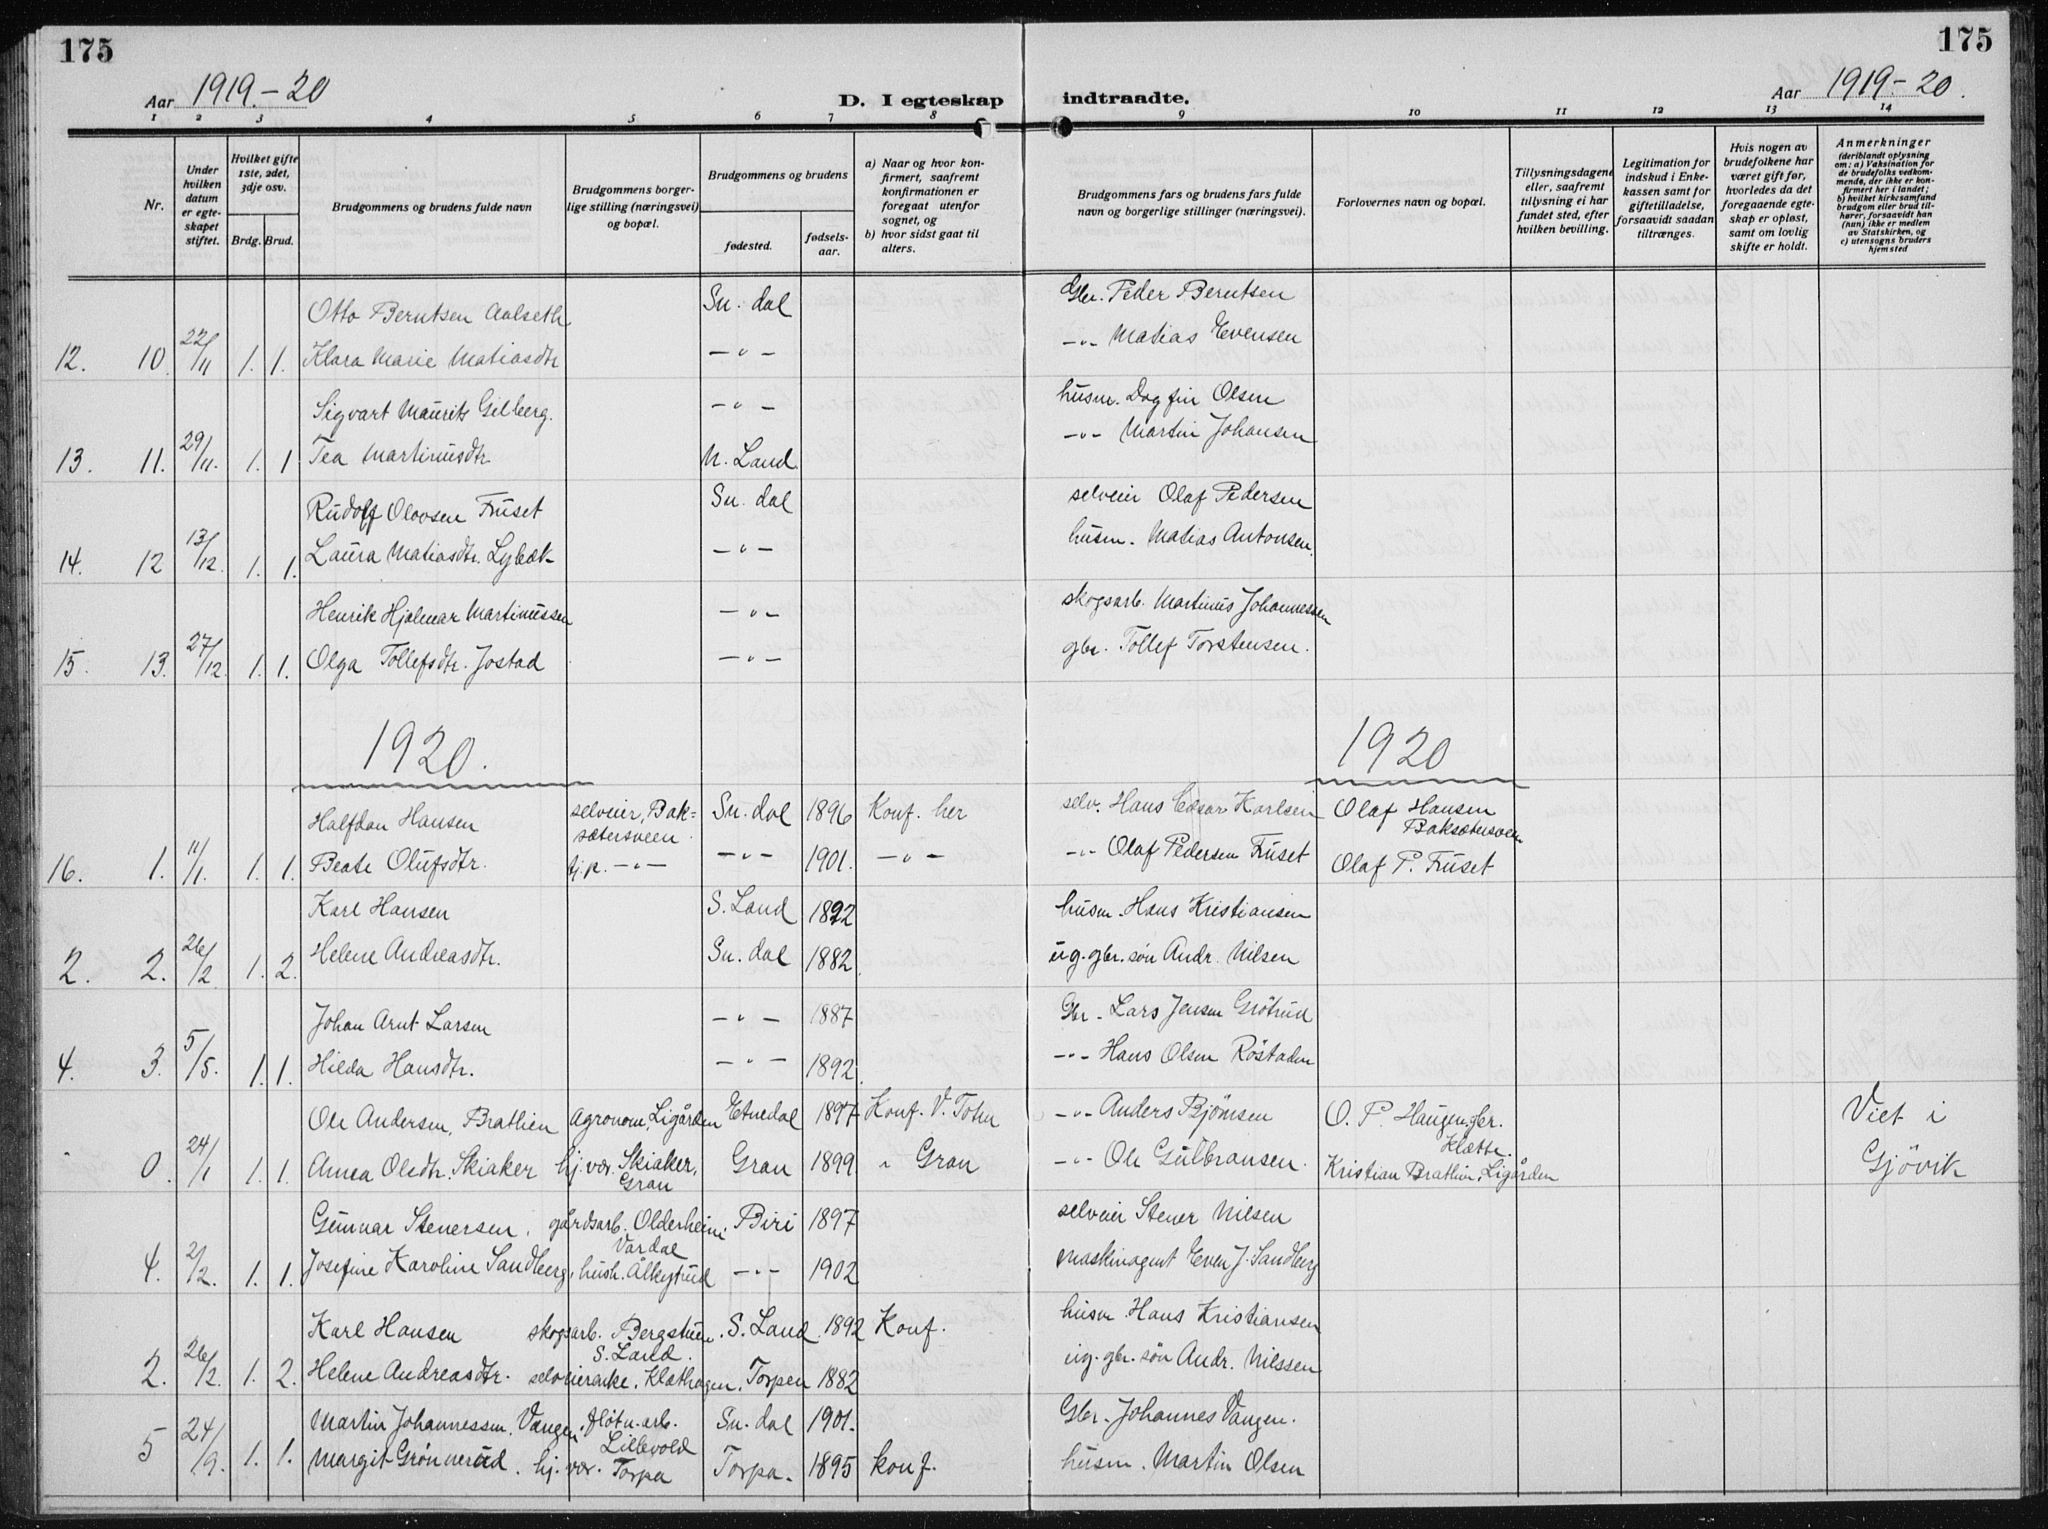 175
175
Aar 1919.-20
D. I egteskap indtraadte.
Aar 1919-20.
1 2 3 4 5 6 7 8 9 10 11 12 13 14
Nr.
Under hvilken datum er egteskapet stiftet.
Hvilket gifte 1ste, 2det, 3dje osv.
Brdg. Brud.
Brudgommens og brudens fulde navn
Brudgommens borgerlige stilling (næringsvei) og bopæl.
Brudgommens og brudens
fødested.
fødselsaar.
a) Naar og hvor konfirmert, saafremt konfirmationen er foregaat utenfor sognet, og
b) hvor sidst gaat til alters.
Brudgommens fars og brudens fars fulde navn og borgerlige stillinger (næringsvei).
Forlovernes navn og bopæl.
Tillysningsdagene eller, saafremt tillysning ei har fundet sted, efter hvilken bevilling.
Legitimation for indskud i Enkekassen samt for giftetilladelse, forsaavidt saadan tiltrænges.
Hvis nogen av brudefolkene har været gift før, hvorledes da det foregaaende egteskap er opløst, samt om lovlig skifte er holdt.
Anmerkninger
(deriblandt oplysning om: a) Vaksination for de brudefolks vedkommende, der ikke er konfirmert her i landet; b) hvilket kirkesamfund brudgom eller brud tilhører, forsaavidt han (hun) ikke er medlem av Statskirken, og c) utensogns bruders hjemsted
Otto Berntsen Aalseth Sn. dal Gbr. Peder Berntsen
12. 10 22/11 1. 1. Klara Marie Matiasdtr —"— —"— Matias Evensen
Sigvart Maurits Gilberg. —"— husm. Dagfin Olsen
13. 11. 29/11. 1. 1 Tea Martinusdtr. N. Land —"— Martin Johansen
Rudolf Olavsen Fruset Sn. dal selveier Olaf Pedersen
14. 12 13/12. 1. 1. Laura Matiasdtr. Lybæk —"— husm. Matias Antonsen.
Henrik Hjalmar Martinussen —"— skogsarb. Martinus Johannessen
15. 13. 27/12. 1. 1. Olga Tollefsdtr. Jostad —"— gbr. Tollef Torstensen.
1920. 1920
Halfdan Hansen selveier, Baksætersveen Sn. dal 1896 Konf. her selv. Hans Edvar Karlsen Olaf Hansen Baksætersveen
16. 1. 11/1. 1. 1. Beate Olufsdtr. tj.p. —"— —"— 1901. —"— —"— Olaf Pedersen Fruset Olaf P. Fruset
Karl Hansen S. Land 1892 husm. Hans Kristiansen
2. 2. 26/2 1. 2. Helene Andreasdtr. Sn. dal 1882 ug. gbr. søn Andr. Nilsen
Johan Arnt Larsen —"— 1887 Gbr. Lars Jensen Grötrud
4. 3. 5/5. 1. 1. Hilda Hansdtr. —"— 1892. —"— Hans Olsen Röstaden
Ole Andersen, Brathien Agronom, Ligården Etnedal 1897 Konf. V. Toten —"— Anders Bjørnsen O. P. Haugen, gbr. Klætte. Viet i
0. 24/1 1. 1. Anna Olsdtr. Skiaker hj. vær. Skiaker, Gran Gran 1899. " Gran —"— Ole Gulbransen. Kristian Brathien, Ligården Gjövik
Gunnar Stenersen, gårdsarb. Olderheim, Vardal Biri 1897 selveier Stener Nilsen
4. 2/2. 1. 1. Josefine Karoline Sandberg, hush. Ålkytrud —"— 1902 maskinagent Even J. Sandberg
Karl Hansen skogsarb. Bergstuen, S. Land. S. Land 1892 Konf. husm Hans Kristiansen
2. 26/2. 1. 2. Helene Andreasdtr. selveierenke, Klæthagen, Torpen 1882 ug. gbr. søn Andr. Nilssen
Martin Johannessen Vangen, fløtn. arb. Lillevold Sn. dal 1901. Gbr. Johannes Vangen.
5 24/9. 1. 1. Margit Grönnerud. hj. vær. Torpa Torpa. 1895 konf. husm. Martin Olsen